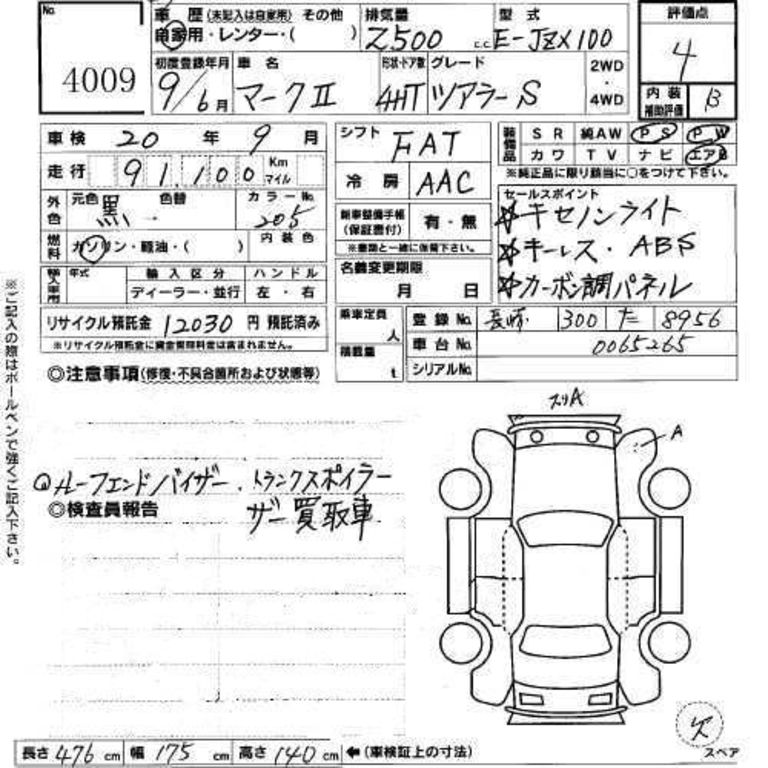 No. 4009
車歴 (未記入は自家用) その他
自家用・レンター・( )
排気量 2500 c.c.
型式 E-JZX100
評価点 4
初度登録年月 9/6月
車名 マークⅡ
形状・ドア数 4HT
グレード ツアラーS
2WD・4WD
内装補助評価 B
車検 20年9月
シフト FAT
装備品 SR 純AW PS PW
カワ TV ナビ エアB
※純正品に限り該当に○をつけて下さい。
走行 91,100 Km マイル
冷房 AAC
外色 元色 黒 色替 カラーNo. 205
新車整備手帳(保証書付) 有・無
※書類と一緒に保管下さい。
セールスポイント
☆キセノンライト
☆キーレス・ABS
☆カーボン調パネル
燃料 ガソリン・軽油・( ) 内装色
輸入車用 年式 輸入区分 ハンドル
ディーラー・並行 左・右
名義変更期限 月 日
リサイクル預託金 12030 円 預託済み
※リサイクル預託金に資金管理料金は含まれません。
乗車定員 人
積載量 t
登録No. 長崎 300 た 8956
車台No. 0065265
シリアルNo.
◎注意事項(修復・不具合箇所および状態等)
スリA
A
ルーフエンドバイザー.トランクスポイラー
◎検査員報告
ザー買取車
※ご記入の際はボールペンで強くご記入下さい。
欠
スペア
長さ 476 cm 幅 175 cm 高さ 140 cm ←(車検証上の寸法)